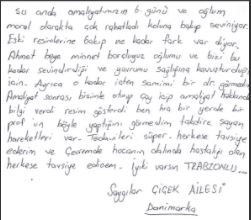 Şu anda ameliyatımızın 6 günü ve oğlum
moral olarakta çok rahatladı koluna bakıp seviniyor.
Eski resimlerine bakıp ne kadar fark var diyor.
Ahmet beye minnet borcluyuz oğlumu ve bizi bu
kadar sevindirdiği ve yavrumu sağlığına kavuşturduğu
için. Ayrıca o kadar isten samimi bir dr görmedim
Ameliyat sonrası bizimle oturup çay içip ameliyat hakkında
bilgi verdi resim gösterdi ben hiç bir yerde bir
prof un böyle yaptığını görmedim takdire şayan
hareketleri var. Teknikleri süper. herkese tavsiye
ederim ve Çevremde hocanın dalında hastalığı olan
herkese tavsiye edicem. İyiki varsın TRABZONLU...
Saygılar ÇİÇEK AİLESİ
Danimarka